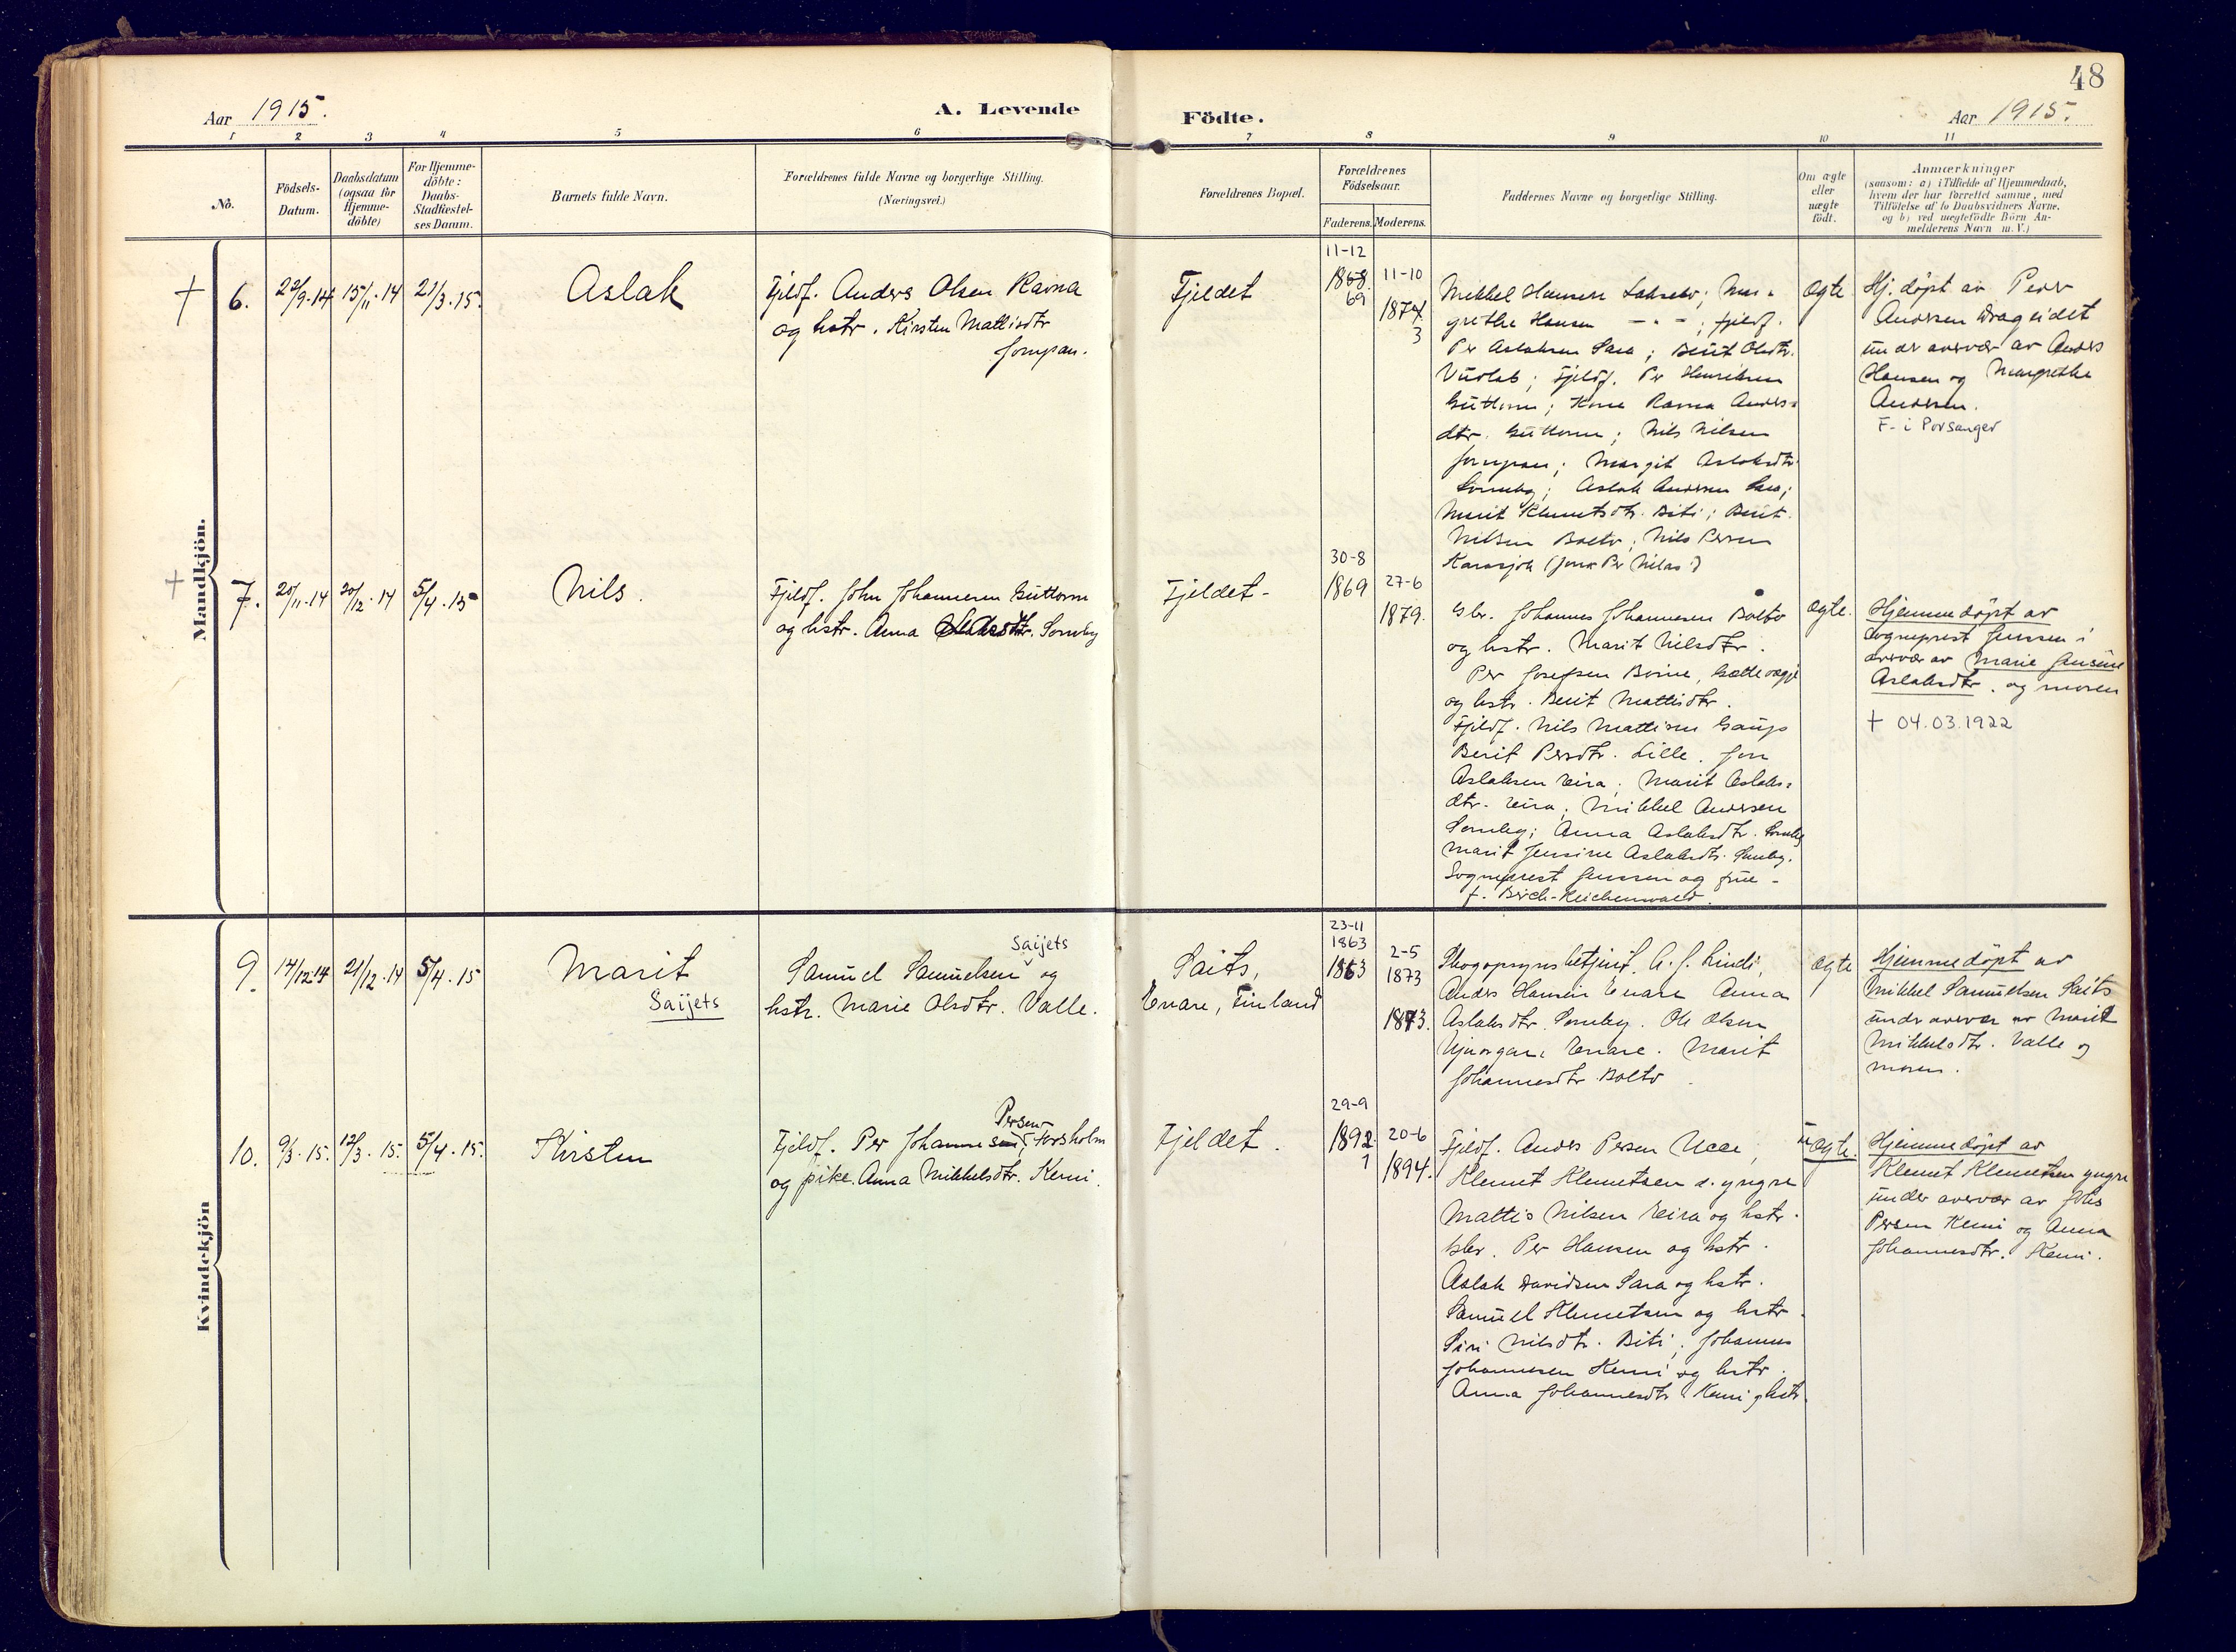 48
Aar 1915.
A. Levende
Födte.
Aar 1915.
1 2 3 4 5 6 7 8 9 10 11
No.
Födsels-
Datum.
Daabsdatum
(ogsaa for
Hjemme-
döbte)
For Hjemme-
döbte:
Daabs-
Stadfæstel-
ses Datum.
Barnets fulde Navn.
Forældrenes fulde Navne og borgerlige Stilling.
(Næringsvei.)
Forældrenes Bopæl.
Forældrenes
Födselsaar.
Faderens. Moderens.
Faddernes Navne og borgerlige Stilling.
Om ægte
eller
uægte
födt.
Anmærkninger
(saasom: a) i Tilfælde af Hjemmedaab,
hvem der har forrettet samme, med
Tilföielse af to Daabsvidners Navne,
og b) ved uægtefödte Börn An-
melderens Navn m. V.)
Mandkjön.
† 6. 22/9.14 15/11.14 21/3.15.
Aslak
Fjeldf. Anders Olsen Ravna
og hstr. Kirsten Mattisdtr
Jompan.
Fjeldet
11-12
1868.
69
11-10
1874
3
Mikkel Hansen Laksebo; Mar-
grethe Hansen — " — ; fjeldf.
Per Aslaksen Sara; Berit Olsdtr.
Vuolab; Fjeldf. Per Henriksen
Guttorm; Kone Ravna Anders-
dtr. Guttorm; Nils Nilsen
Jompan; Margit Aslaksdtr.
Somby; Aslak Andersen Sara;
Marit Klemetsdtr. Biti; Berit
Nilsen Balto; Nils Persen
Karasjok
ægte
Hj. døpt av Peder
Andersen Drageidet
under overvær av Anders
Hansen og Margrethe
Andersen.
F. i Porsanger
† 7. 20/11.14 30/12.14 5/4.15
Nils.
Fjeldf. John Johannesen Guttorm
og hstr. Anna Aslaksdtr. Somby
Fjeldet-
30-8
1869
27-6
1879.
Gbr. Johannes Johannesen Balto
og hstr. Marit Nilsdtr.
Per Josefsen Boine,
og hstr. Berit Mattisdtr.
Fjeldf. Nils Mattisen Gaup
Berit Persdtr. Lille. Jon
Aslaksen Eira, Marit Aslaks-
dtr. Eira, Mikkel Andersen
Somby; Anna Aslaksdtr. Somby
Marit Jensine Aslaksdtr. Somby.
Sogneprest Jenssen og frue -
f. Birch-Reichenwald.
ægte.
Hjemmedøpt av
Sogneprest Jenssen i
overvær av Marie Jensine
Aslaksdtr. og moren
† 04.03.1922
Kvindekjön
9. 14/12.14 21/12.14 5/4.15
Marit
Saijets
Saijets
Samuel Samuelsen og
hstr. Marie Olsdtr. Valle.
Saits,
Enare, Finland
23-11
1863
1863
2-5
1873
1873.
Skogopsynsbetjent A. J. Lindi,
Anders Hansen Enare Anna
Aslaksdtr. Somby. Ole Olsen
Enare. Marit
Johannesdtr Balto
ægte
Hjemmedøpt av
Mikkel Samuelsen Saits
under overvær av Marit
Mikkelsdtr. Valle og
moren.
10. 9/3.15. 12/3.15. 5/4.15.
Kirsten
Persen
Fjeldf. Per Johannesen Forsholm
og pike Anna Mikkelsdtr. Kemi.
Fjeldet.
29-9
1892
1
20-6
1894.
Fjeldf. Anders Persen Ucce,
Klemet Klemetsen d. yngre
Mattis Nilsen Eira og hstr.
Gbr. Per Hansen og hstr.
Aslak Davidsen Sara og hstr.
Samuel Klemetsen og hstr.
Siri Nilsdtr. Biti; Johannes
Johannesen Kemi og hstr.
Anna Johannesdtr. Kemi
uægte.
Hjemmedøpt av
Klemet Klemetsen yngre
under overvær av Johs
Persen Kemi og Anna
Johannesdtr. Kemi.